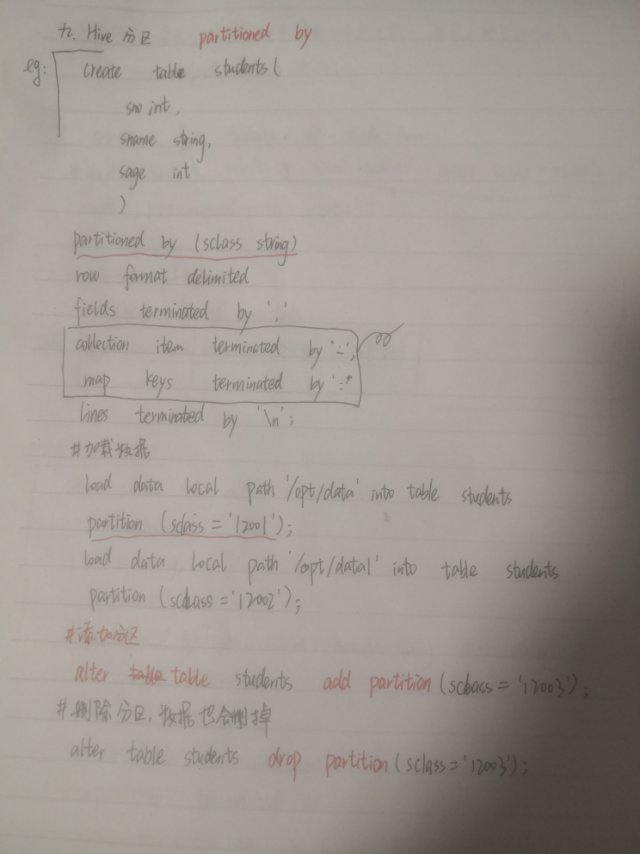 九. Hive 分区 partitioned by
eg: create table students(
sno int,
sname string,
sage int
)
partitioned by (sclass string)
row format delimited
fields terminated by ','
collection item terminated by '-'
map keys terminated by ':'
lines terminated by '\n';
#加载数据
load data local path '/opt/data' into table students
partition (sclass = '12001');
load data local path '/opt/data1' into table students
partition (sclass = '12002');
#添加分区
alter table table students add partition (sclass = '12003');
#删除分区,数据也会删掉
alter table students drop partition (sclass = '12003');